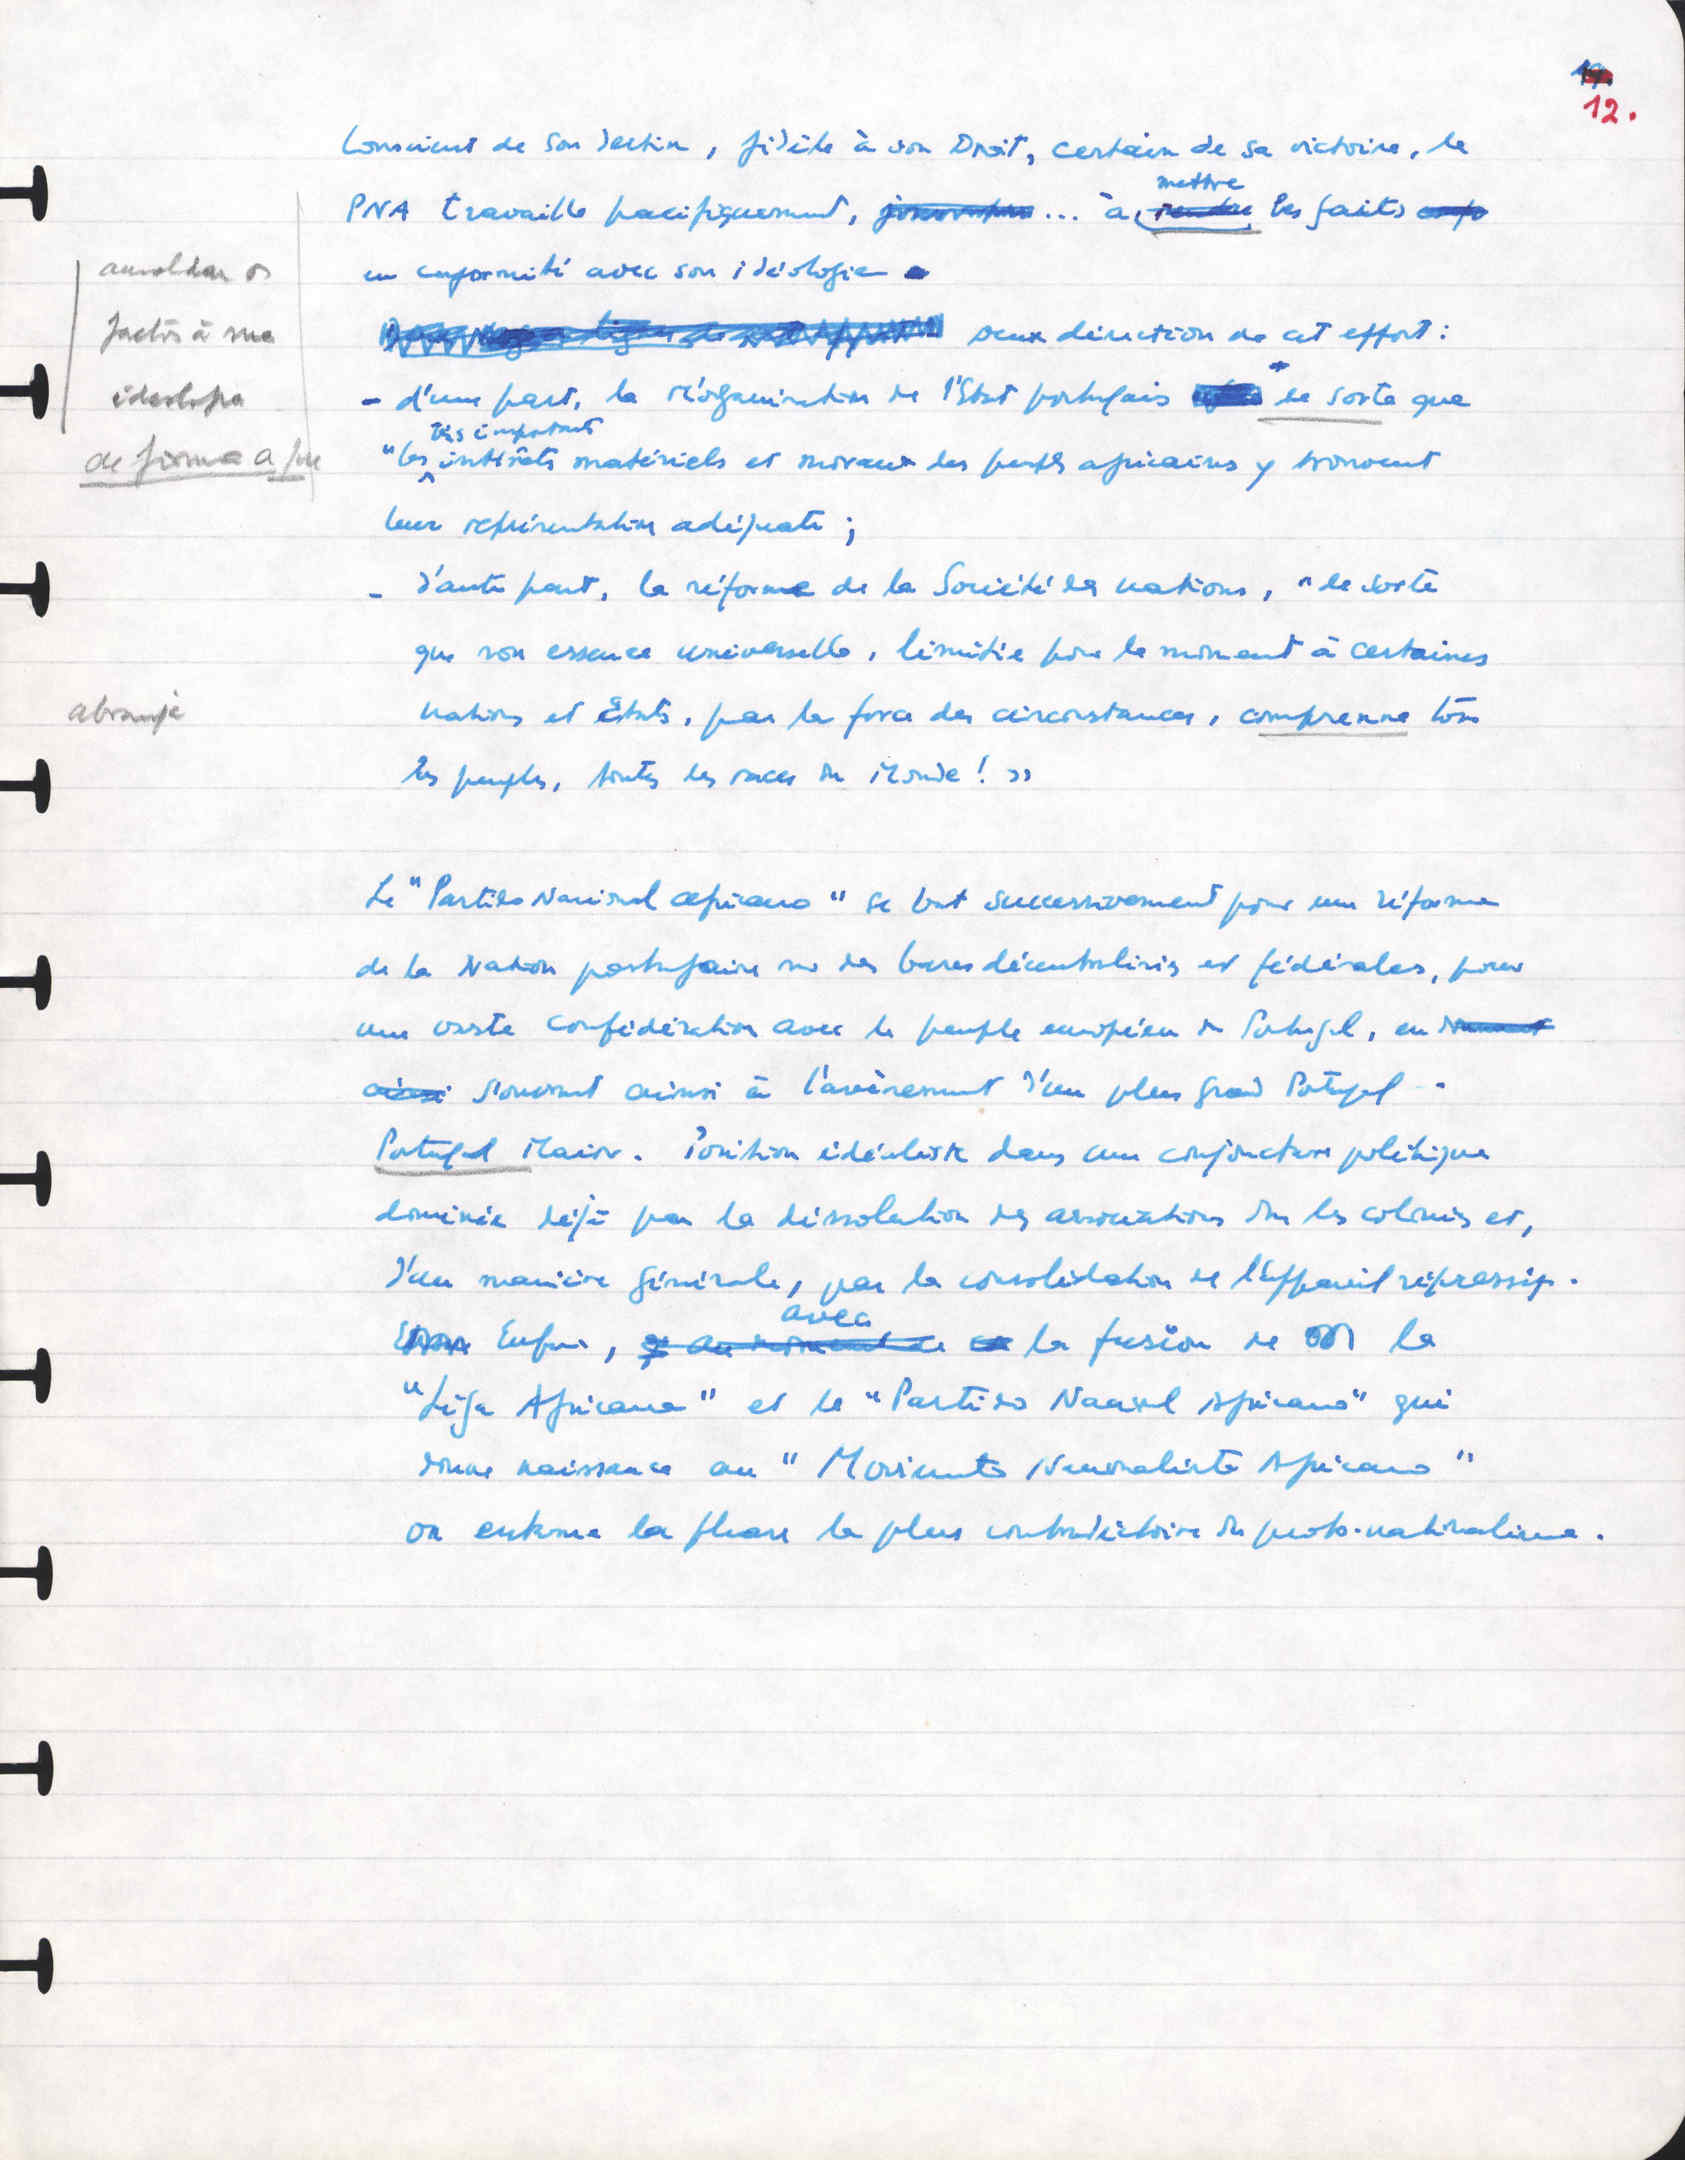 12.
Conscient de son destin, fidèle à son Droit, certain de sa victoire, le
mettre
PNA travaille pacifiquement, ... à rendre les faits
en conformité avec son idéologie.
amoldar os
factos à sua
ideologia
de forma a que
Deux direction de cet effort :
- d'une part, la réorganisation de l'Etat portugais de sorte que
très importants
"les intérêts matériels et moraux des peuples africains y trouvent
leur représentation adéquate ;
- d'autre part, la réforme de la Société des Nations, "de sorte
que son essence universelle, limitée pour le moment à certaines
abranja
nations et Etats, par la force des circonstances, comprenne tous
les peuples, toutes les races du Monde ! »
Le "Partido Nacional Africano" se bat successivement pour une réforme
de la Nation portugaise sur des bases décentralisées et fédérales, pour
une vaste confédération avec le peuple européen du Portugal, en
ainsi ainsi à l'avènement d'un plus grand Portugal -
Portugal Maior. Position idéaliste dans une conjoncture politique
dominée déjà par la dissolution des associations dans les colonies et,
d'une manière générale, par la consolidation de l'appareil répressif.
avec
Enfin, au moment de la fusion de la
"Liga Africana" et le "Partido Nacional Africano" qui
donne naissance au "Movimento Nacionalista Africano"
on entame la phase la plus contradictoire du proto-nationalisme.